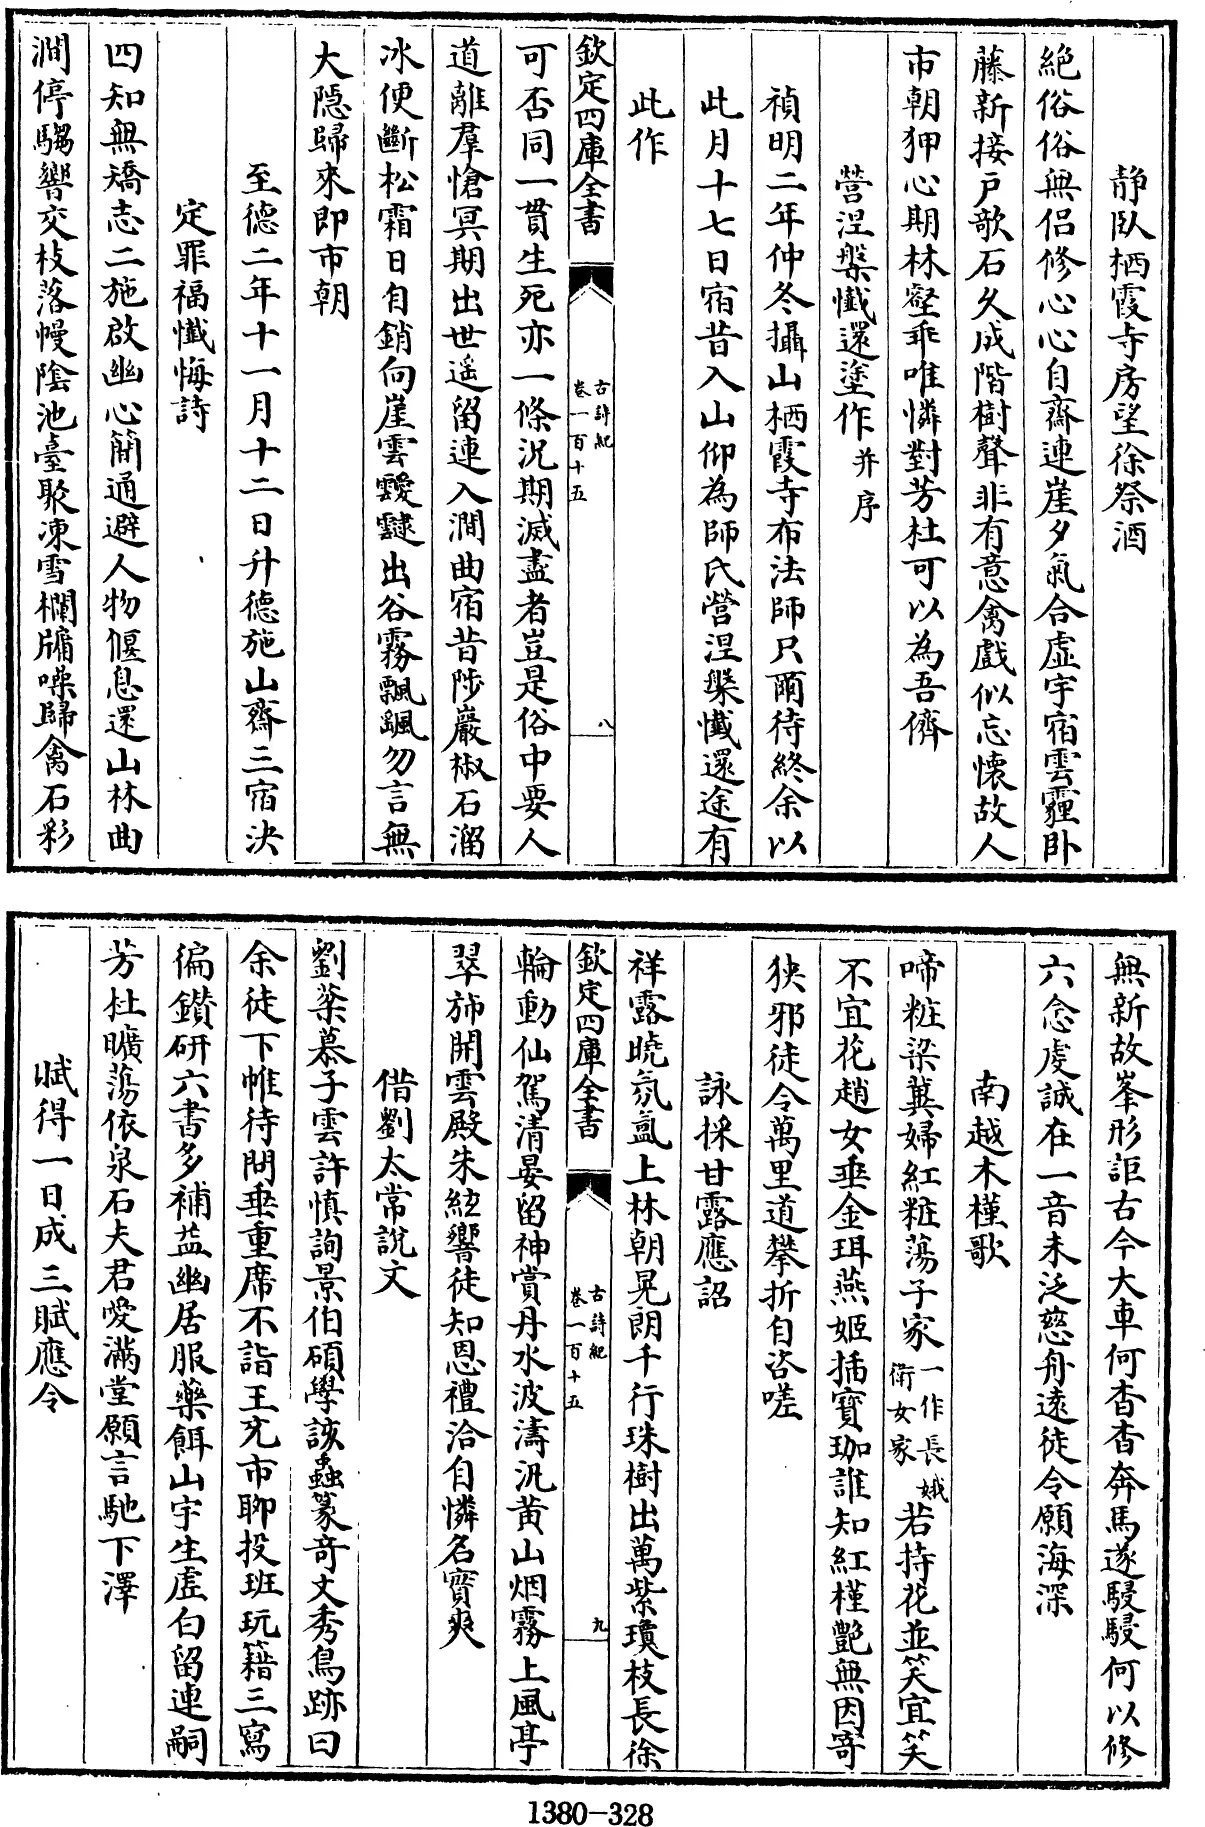 静臥栖霞寺房望徐祭酒
絶俗俗無侣修心心自齋連崖夕氣合虛宇宿雲霾卧
藤新接戶欹石久成階樹聲非有意禽戲似忘懷故人
市朝狎心期林壑乖唯憐對芳杜可以為吾儕
營涅槃懺還塗作并序
禎明二年仲冬攝山栖霞寺布法師只爾待終余以
此月十七日宿昔入山仰為師氏營涅槃懺還途有
此作
欽定四庫全書
古詩紀
卷一百十五
八
可否同一貫生死亦一條況期滅盡者豈是俗中要人
道離羣愴冥期出世遥留連入澗曲宿昔陟巖椒石溜
冰便斷松霜日自銷向崖雲靉靆出谷霧飄颻勿言無
大隱歸來即市朝
至德二年十一月十二日升德施山齋三宿決
定罪福懺悔詩
四知無矯志二施啟幽心簡通避人物偃息還山林曲
澗停騶響交枝落幔陰池臺聚凍雪欄牖噪歸禽石彩
無新故峯形詎古今大車何杳杳奔馬遂駸駸何以修
六念虔誠在一音未泛慈舟遠徒令願海深
南越木槿歌
啼粧梁冀婦紅粧蕩子家一作長娥
衛女家若持花並笑宜笑
不宜花趙女垂金珥燕姬插寳珈誰知紅槿艷無因寄
狹邪徒令萬里道攀折自咨嗟
詠採甘露應詔
祥露曉氛氳上林朝晃朗千行珠樹出萬紫瓊枝長徐
欽定四庫全書
古詩紀
卷一百十五
九
輪動仙駕清晏留神賞丹水波濤汎黄山烟霧上風亭
翠旆開雲殿朱絃響徒知恩禮洽自憐名實爽
借劉太常說文
劉棻慕子雲許慎詢景伯碩學該蟲篆奇文秀鳥跡曰
余徒下帷待問垂重席不詣王充市聊投班玩籍三寫
徧鑚研六書多補益幽居服藥餌山宇生虛白留連嗣
芳杜曠蕩依泉石夫君愛滿堂願言馳下澤
賦得一日成三賦應令
1380-328